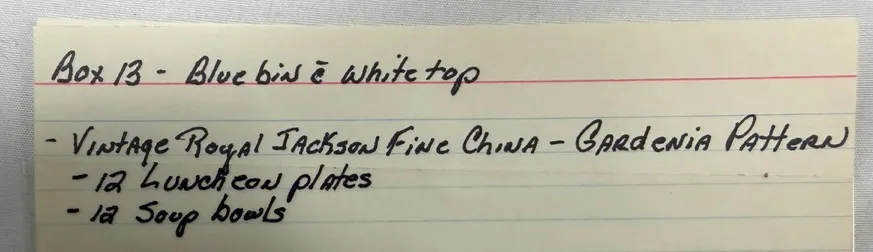 Box 13 - Blue bin c̄ white top
- Vintage Royal Jackson Fine China - Gardenia Pattern
- 12 Luncheon plates
- 12 Soup bowls